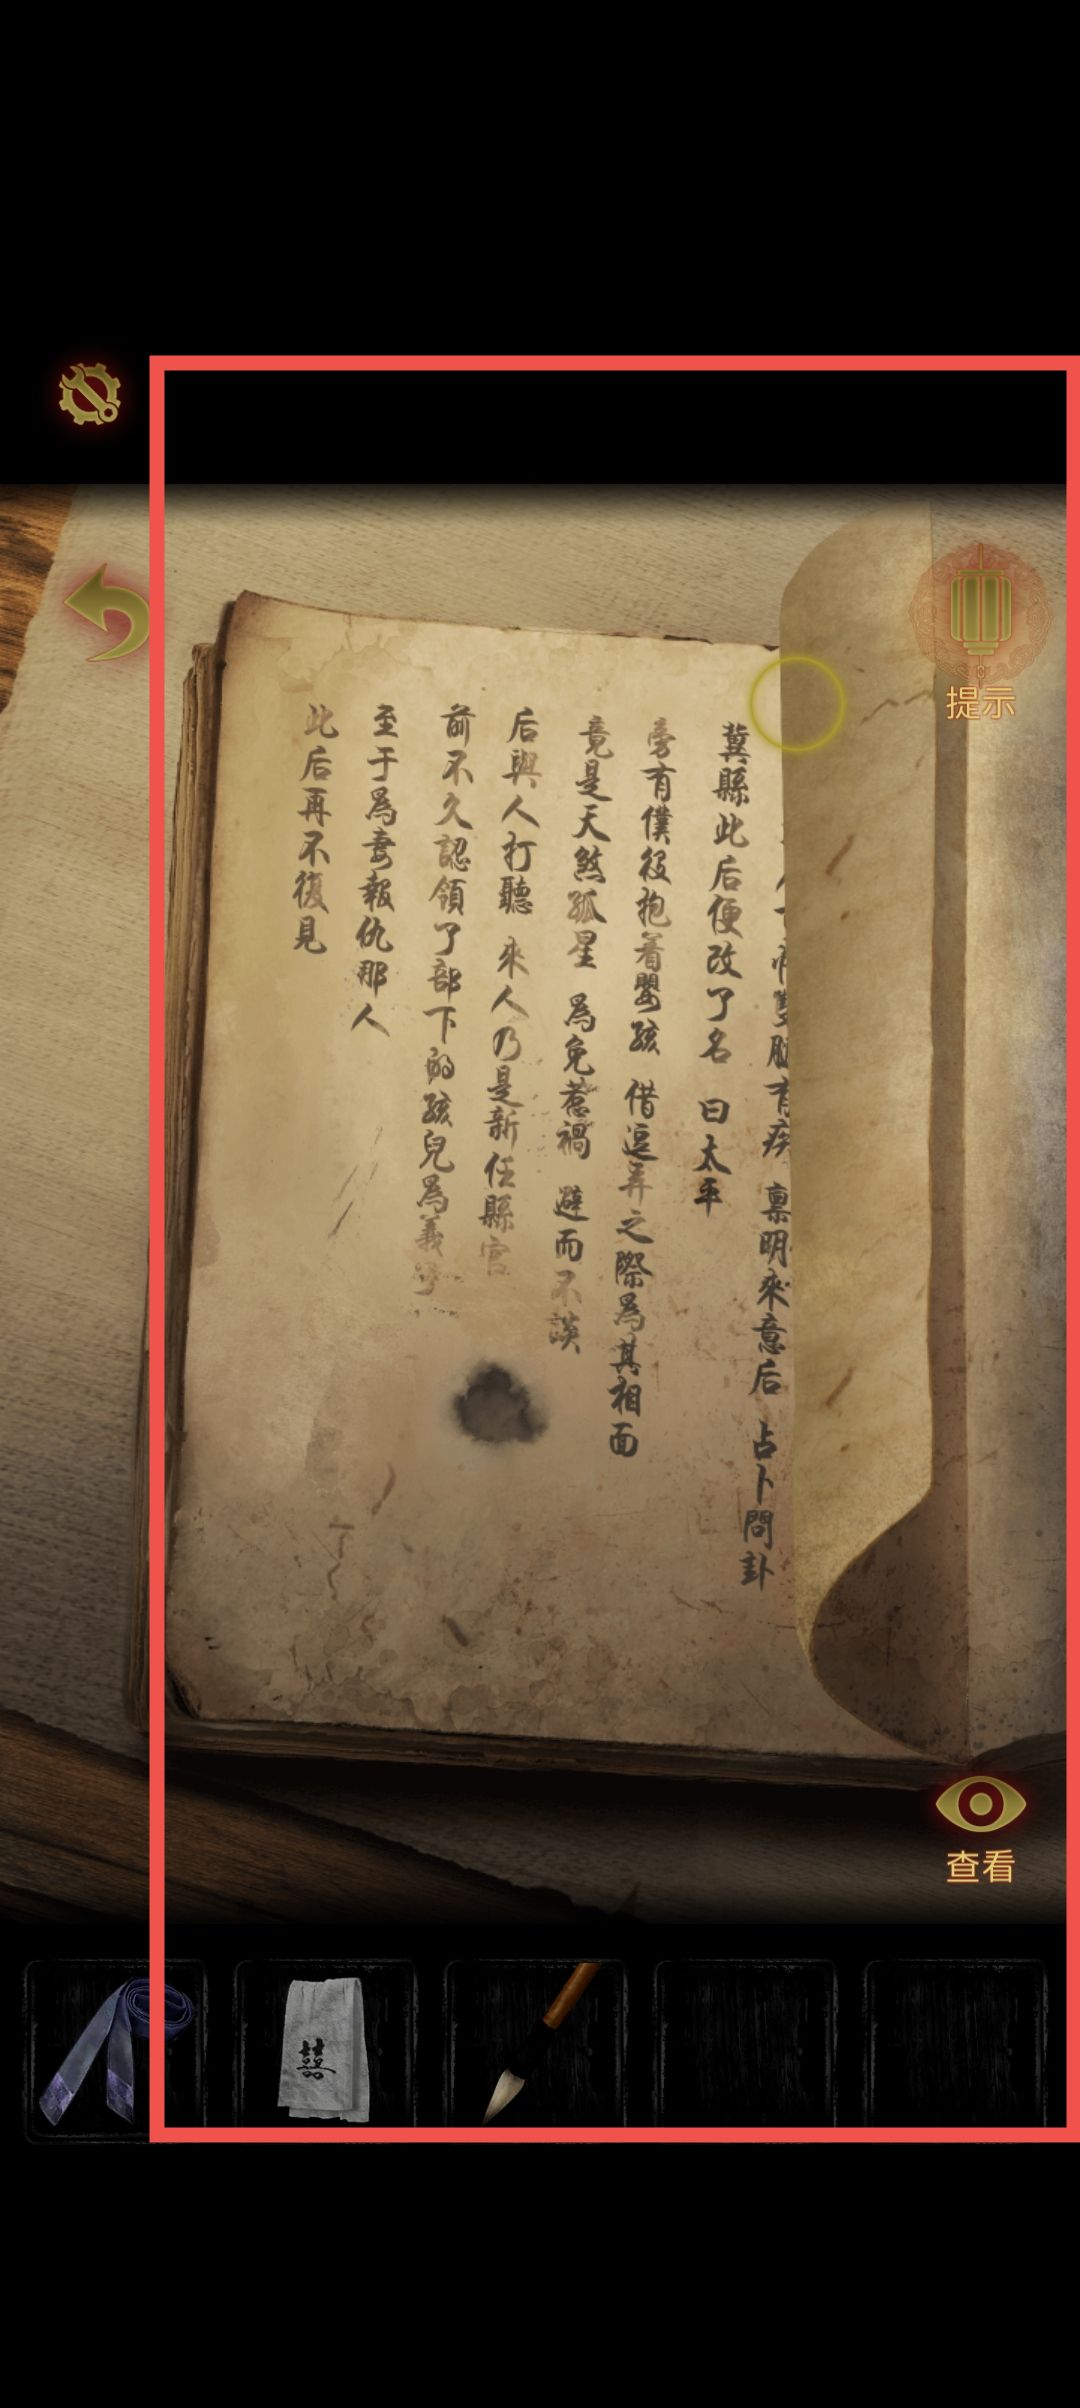 有疾 稟明來意后 占卜問卦
冀縣此后便改了名 曰太平
旁有僕役抱着嬰孩 借逗弄之際為其相面
竟是天煞孤星 為免惹禍 避而不談
后與人打聽 來人乃是新任縣官
前不久認領了部下的孩兒為義
至于為妻報仇那人
此后再不復見
提示
查看
囍